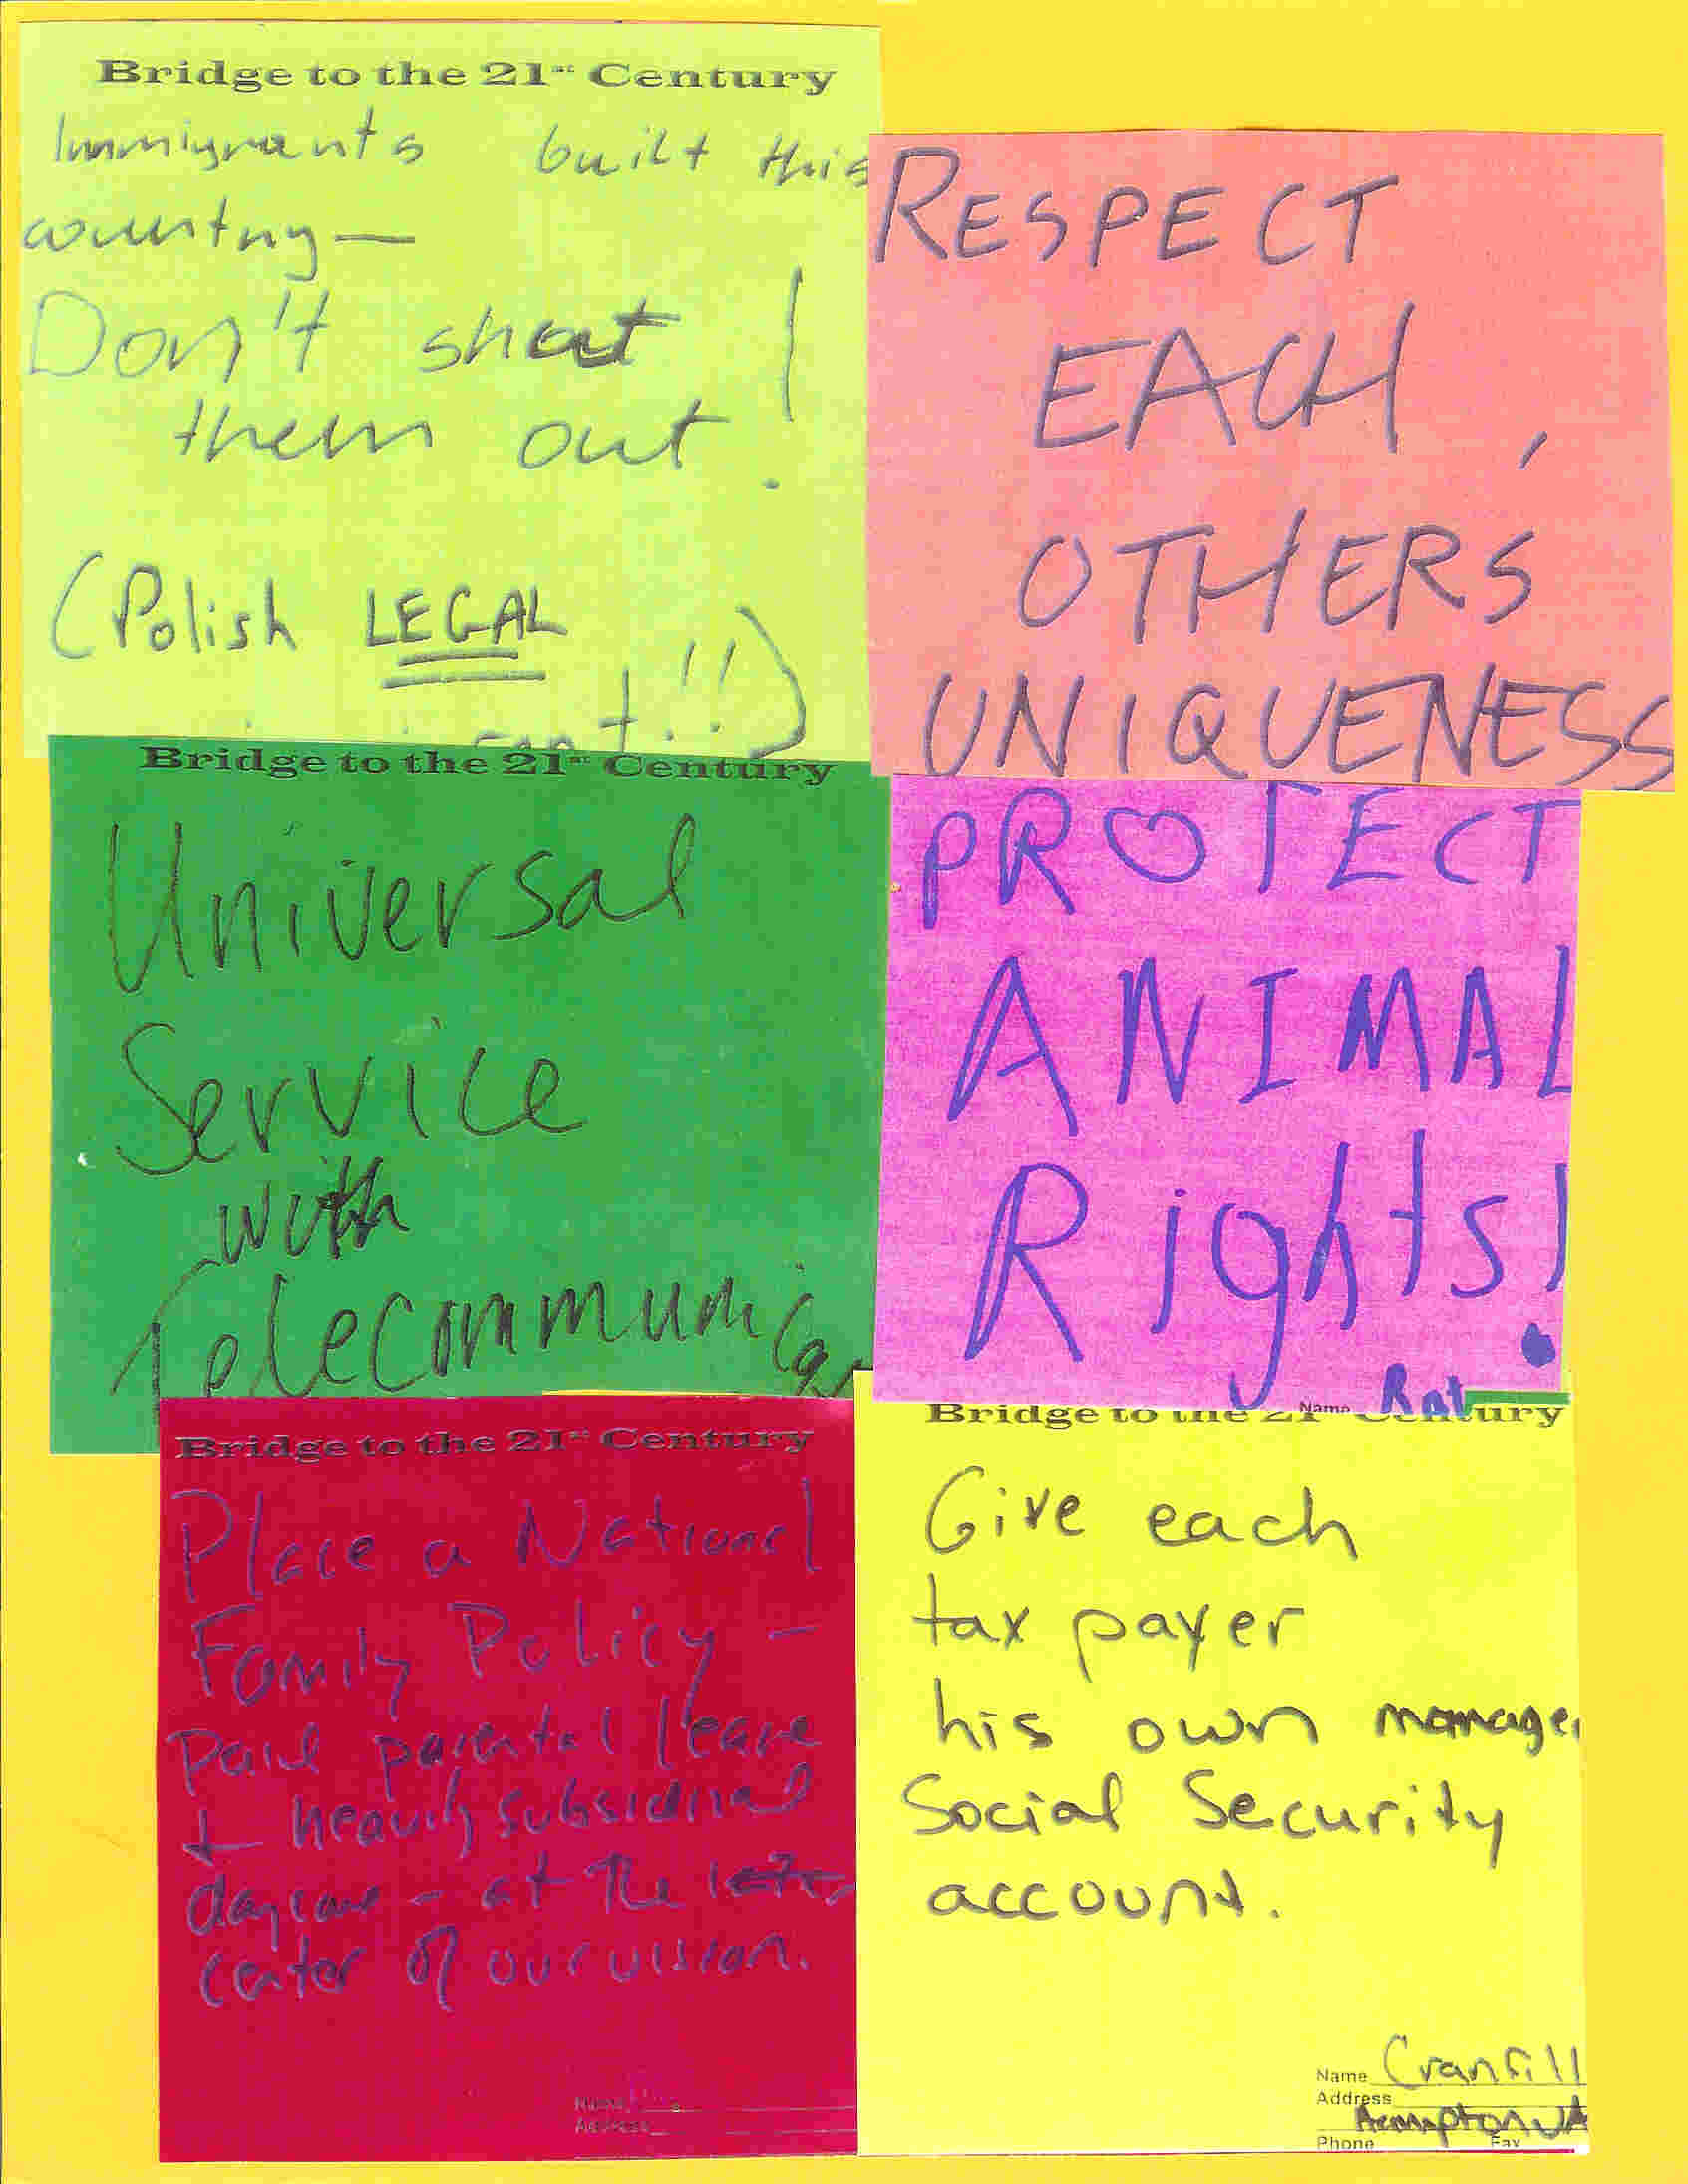 Bridge to the 21st Century
Immigrants built this
country —
Don't shut
them out!
(Polish LEGAL
!!)
RESPECT
EACH
OTHERS
UNIQUENESS
Bridge to the 21st Century
Universal
Service
with
Telecommunica
PROTECT
ANIMAL
Rights!
Name
Bridge to the 21st Century
Place a National
Family Policy -
paid parental leave
+ heavily subsidized
daycare - at the
center of our vision.
Name
Address
Bridge to the 21st Century
Give each
tax payer
his own
Social Security
account.
Name Cranfill
Address
VA
Phone Fax